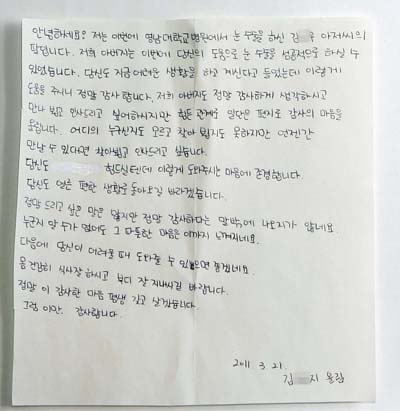 안녕하세요 저는 이번에 영남대학교병원에서 눈 수술을 하신 김 우 아저씨의
딸입니다. 저희 아버지는 이번에 당신의 도움으로 눈 수술을 성공적으로 하실 수
있었습니다. 당신도 지금 어려운 생활을 하고 계신다고 들었는데 이렇게
도움을 주시니 정말 감사 합니다. 저희 아버지도 정말 감사하게 생각하시고
만나 뵙고 인사드리고 싶어하시지만 힘든 관계로 일단은 편지로 감사의 마음을
올립니다. 어디의 누구신지도 모르고 찾아 뵙지도 못하지만 언젠간
만날 수 있다면 찾아뵙고 인사드리고 싶습니다.
당신도 힘드실텐데 이렇게 도와주시는 마음에 존경합니다.
당신도 얼른 편한 생활로 돌아오길 바라겠습니다.
정말 드리고 싶은 말은 많지만 정말 감사하다는 말밖에 나오지가 않네요.
누군지 알 수가 없어도 그 따뜻한 마음은 여기까지 느껴지네요.
다음에 당신이 어려울 때 도와줄 수 있으면 좋겠네요.
몸 건강히 식사 잘 하시고 부디 잘 지내시길 바랍니다.
정말 이 감사한 마음 평생 갖고 살겠습니다.
그럼 이만. 감사합니다.
2011. 3. 21.
김 지 올림